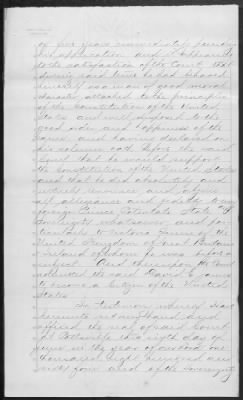 of five years immediately preceding
his application and it appearing
to the satisfaction of the Court that
during said time he had behaved
himself as a man of good moral
character attached to the principles
of the Constitution of the United
States and well disposed to the
good order and happiness of the
same and having declared on
his solemn oath before the said
Court that he would support
the Constitution of the United States
and that he did absolutely and
entirely renounce and abjure
all allegiance and fidelity to any
foreign Prince Potentate State or
Sovereignty whatsoever and par
ticularly to Victoria Queen of the
United Kingdom of Great Britain
& Ireland of whom he was before a
subject. And thereupon the Court
admitted the said David E
to become a Citizen of the United
States.
In testimony whereof I have
hereunto set my hand and
affixed the seal of said Court
at Pottsville this eighth day of
June in the year of our Lord one
thousand eight hundred and
sixty four and of the Sovereignty